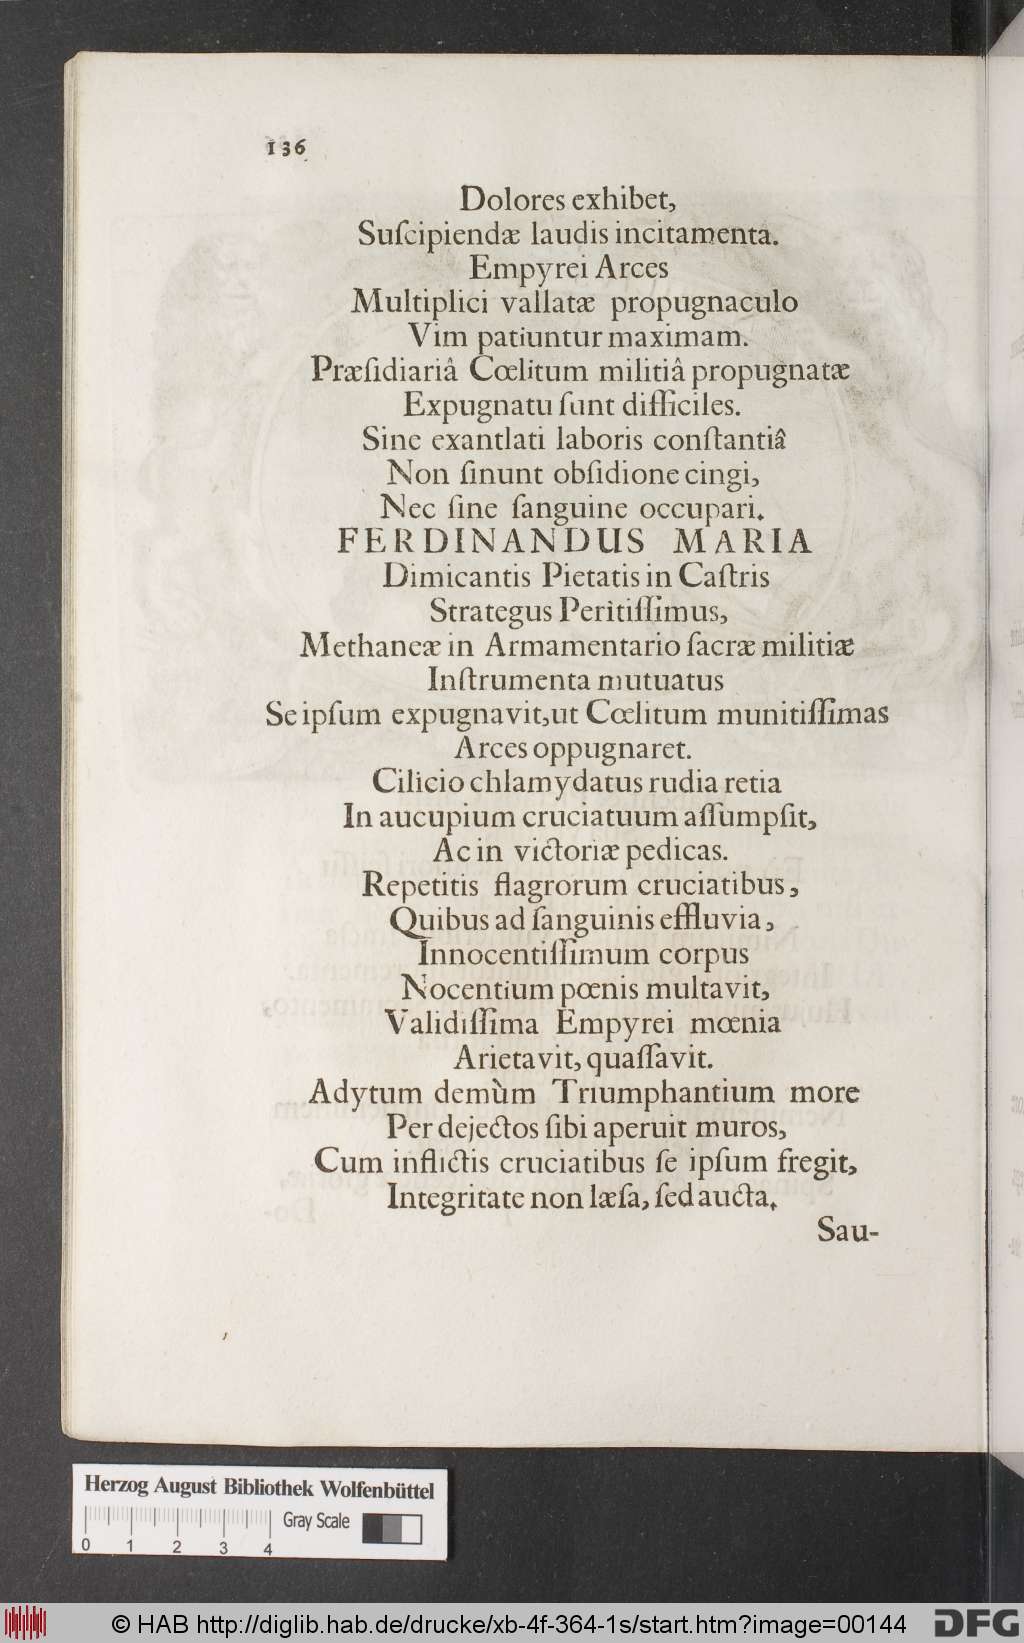 136
Dolores exhibet,
Suſcipiendæ laudis incitamenta.
Empyrei Arces
Multiplici vallatæ propugnaculo
Vim patiuntur maximam.
Præſidiariâ Cœlitum militiâ propugnatæ
Expugnatu ſunt difficiles.
Sine exantlati laboris conſtantiâ
Non ſinunt obſidione cingi,
Nec ſine ſanguine occupari.
FERDINANDUS MARIA
Dimicantis Pietatis in Caſtris
Strategus Peritiſſimus,
Methaneæ in Armamentario ſacræ militiæ
Inſtrumenta mutuatus
Se ipſum expugnavit, ut Cœlitum munitiſſimas
Arces oppugnaret.
Cilicio chlamydatus rudia retia
In aucupium cruciatuum aſſumpſit,
Ac in victoriæ pedicas.
Repetitis flagrorum cruciatibus,
Quibus ad ſanguinis effluvia,
Innocentiſſimum corpus
Nocentium pœnis multavit,
Validiſſima Empyrei mœnia
Arietavit, quaſſavit.
Adytum demùm Triumphantium more
Per dejectos ſibi aperuit muros,
Cum inflictis cruciatibus ſe ipſum fregit,
Integritate non læſa, ſed aucta.
Sau-
Herzog August Bibliothek Wolfenbüttel
Gray Scale
0 1 2 3 4
© HAB http://diglib.hab.de/drucke/xb-4f-364-1s/start.htm?image=00144
DFG